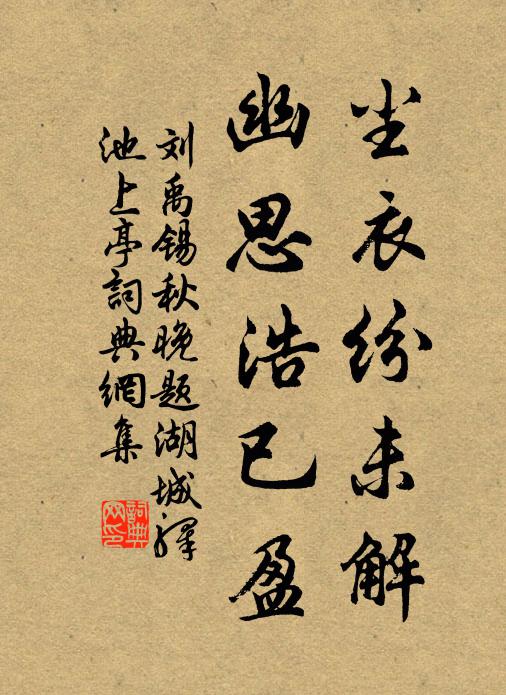 尘衣纷未解
幽思浩已盈
刘禹锡秋晚题湖城驿
池上亭词典網集
詞典
网印